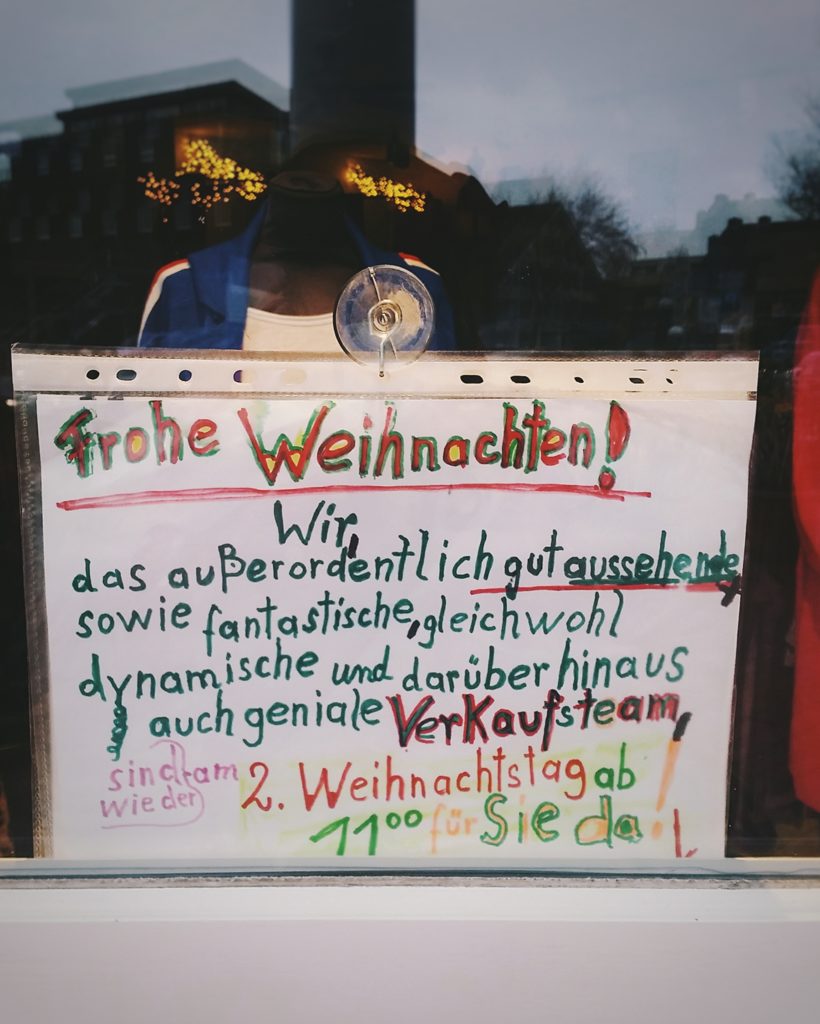 Frohe Weihnachten!
Wir,
das außerordentlich gut aussehende
sowie fantastische, gleichwohl
dynamische und darüber hinaus
auch geniale Verkaufsteam,
sind am 2. Weihnachtstag ab
wieder 11⁰⁰ für Sie da!